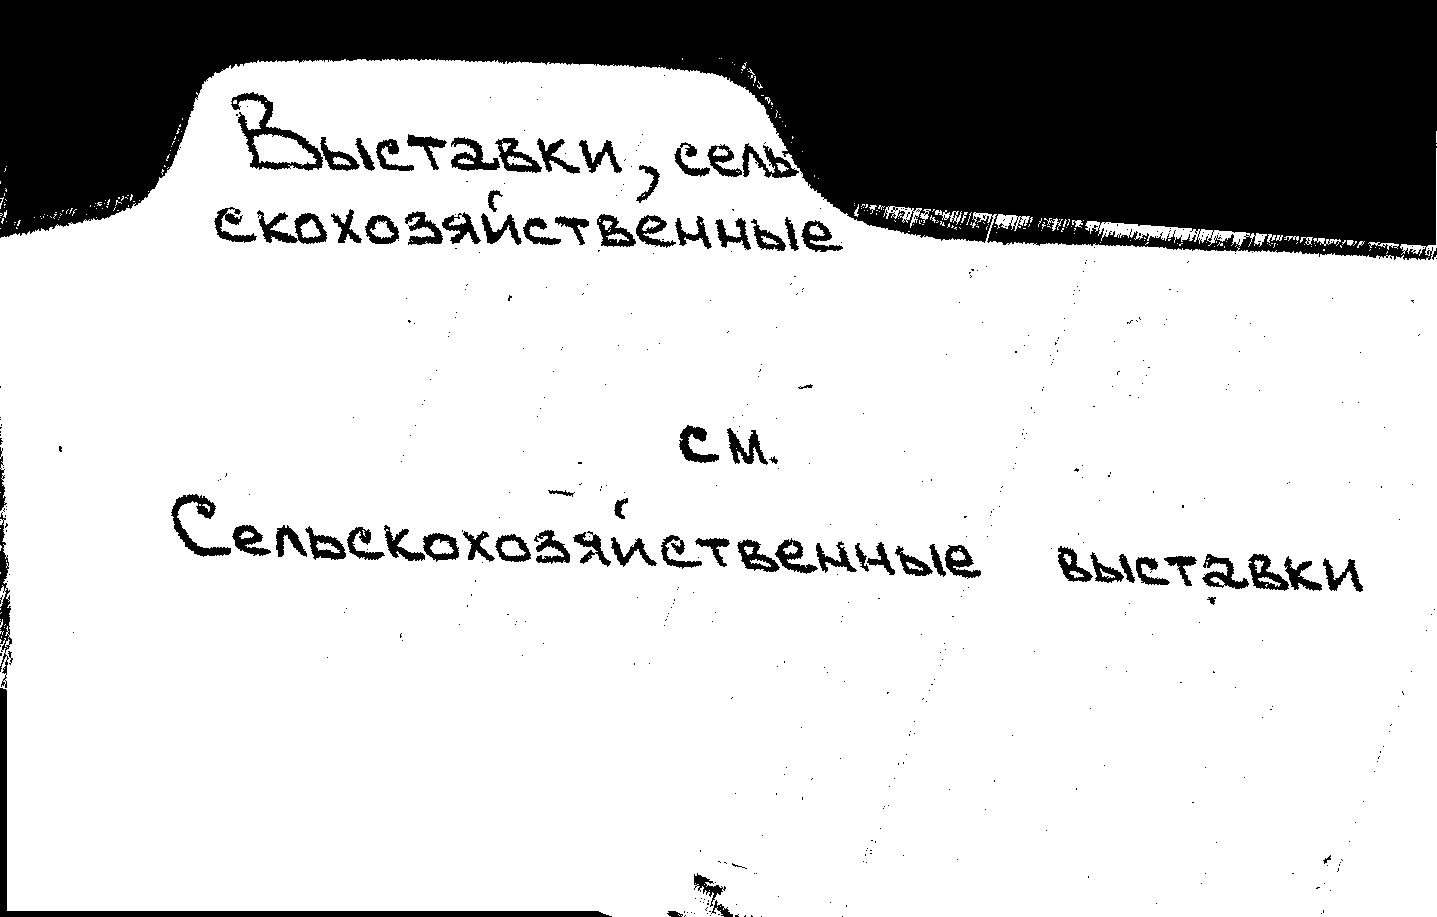 Выставки, сель
скохозяйственные
см.
Сельскохозяйственные выставки